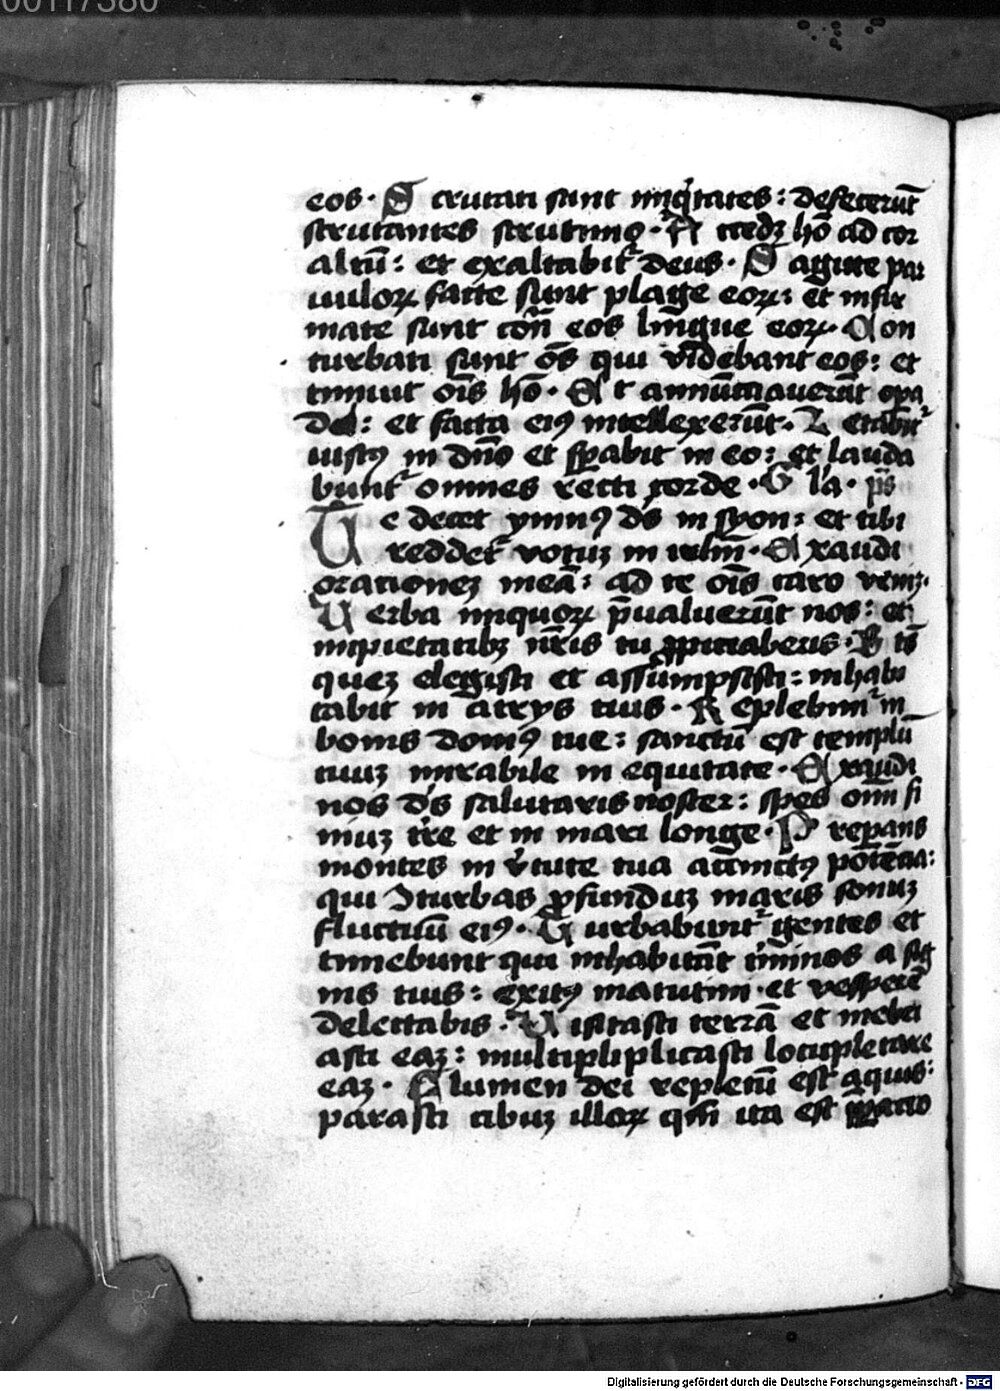 00117380
eos · S crutati sunt iniq̇tates : defecerūt
scrutantes scrutinio · A cced₃ hō ad cor
altū : et exaltabit᷑ deus · S agitte par
uuloꝝ facte sunt plage eoꝝ : et infir
mate sunt con̄ eos lingue eoꝝ · C on
turbati sunt ōs qui videbant eos : et
timuit oīs hō · E t annūciauerūt opa
dei : et facta eiꝯ intellexerūt · L etabit᷑
iustꝯ in dn̄o et sp̄abit in eo : et lauda
bunt᷑ omnes recti corde · G l'a · p̄s
T e decet ymnꝯ d̄s in syon : et tibi
reddet᷑ votuʒ in irlm̄ · E xaudi
orationeʒ meā : ad te oīs caro veniʒ ·
U erba iniquoꝝ p̄ualuerūt nos : et
impietatibʒ nr̄is tu ꝓpitiaberis · B t̄s
queʒ elegisti et assūmpsisti : inhabi
tabit in atrys tuis · R eplebim᷑ in
bonis domꝯ tue : sanctū est templū
tuuʒ mirabile in equitate · E xaudi
nos d̄s salutaris noster : spes oīm fi
niuʒ tr̄e et in mari longe · P reparans
montes in v̓tute tua accinctꝯ potēcia :
qui Ↄturbas ꝓfunduʒ maris sonuʒ
fluctuū eiꝯ · T urbabunt᷑ gentes et
timebunt qui inhabitāt t̓minos a sig
nis tuis : exitꝯ matutini et vesperē
delectabis · U isitasti terrā et inebri
asti eaʒ : multipliplicasti locupletare
eaʒ · F lumen dei repletū est aquis :
parasti cibuʒ illoꝝ qm̄ ita est p̄paratio
Digitalisierung gefördert durch die Deutsche Forschungsgemeinschaft - DFG